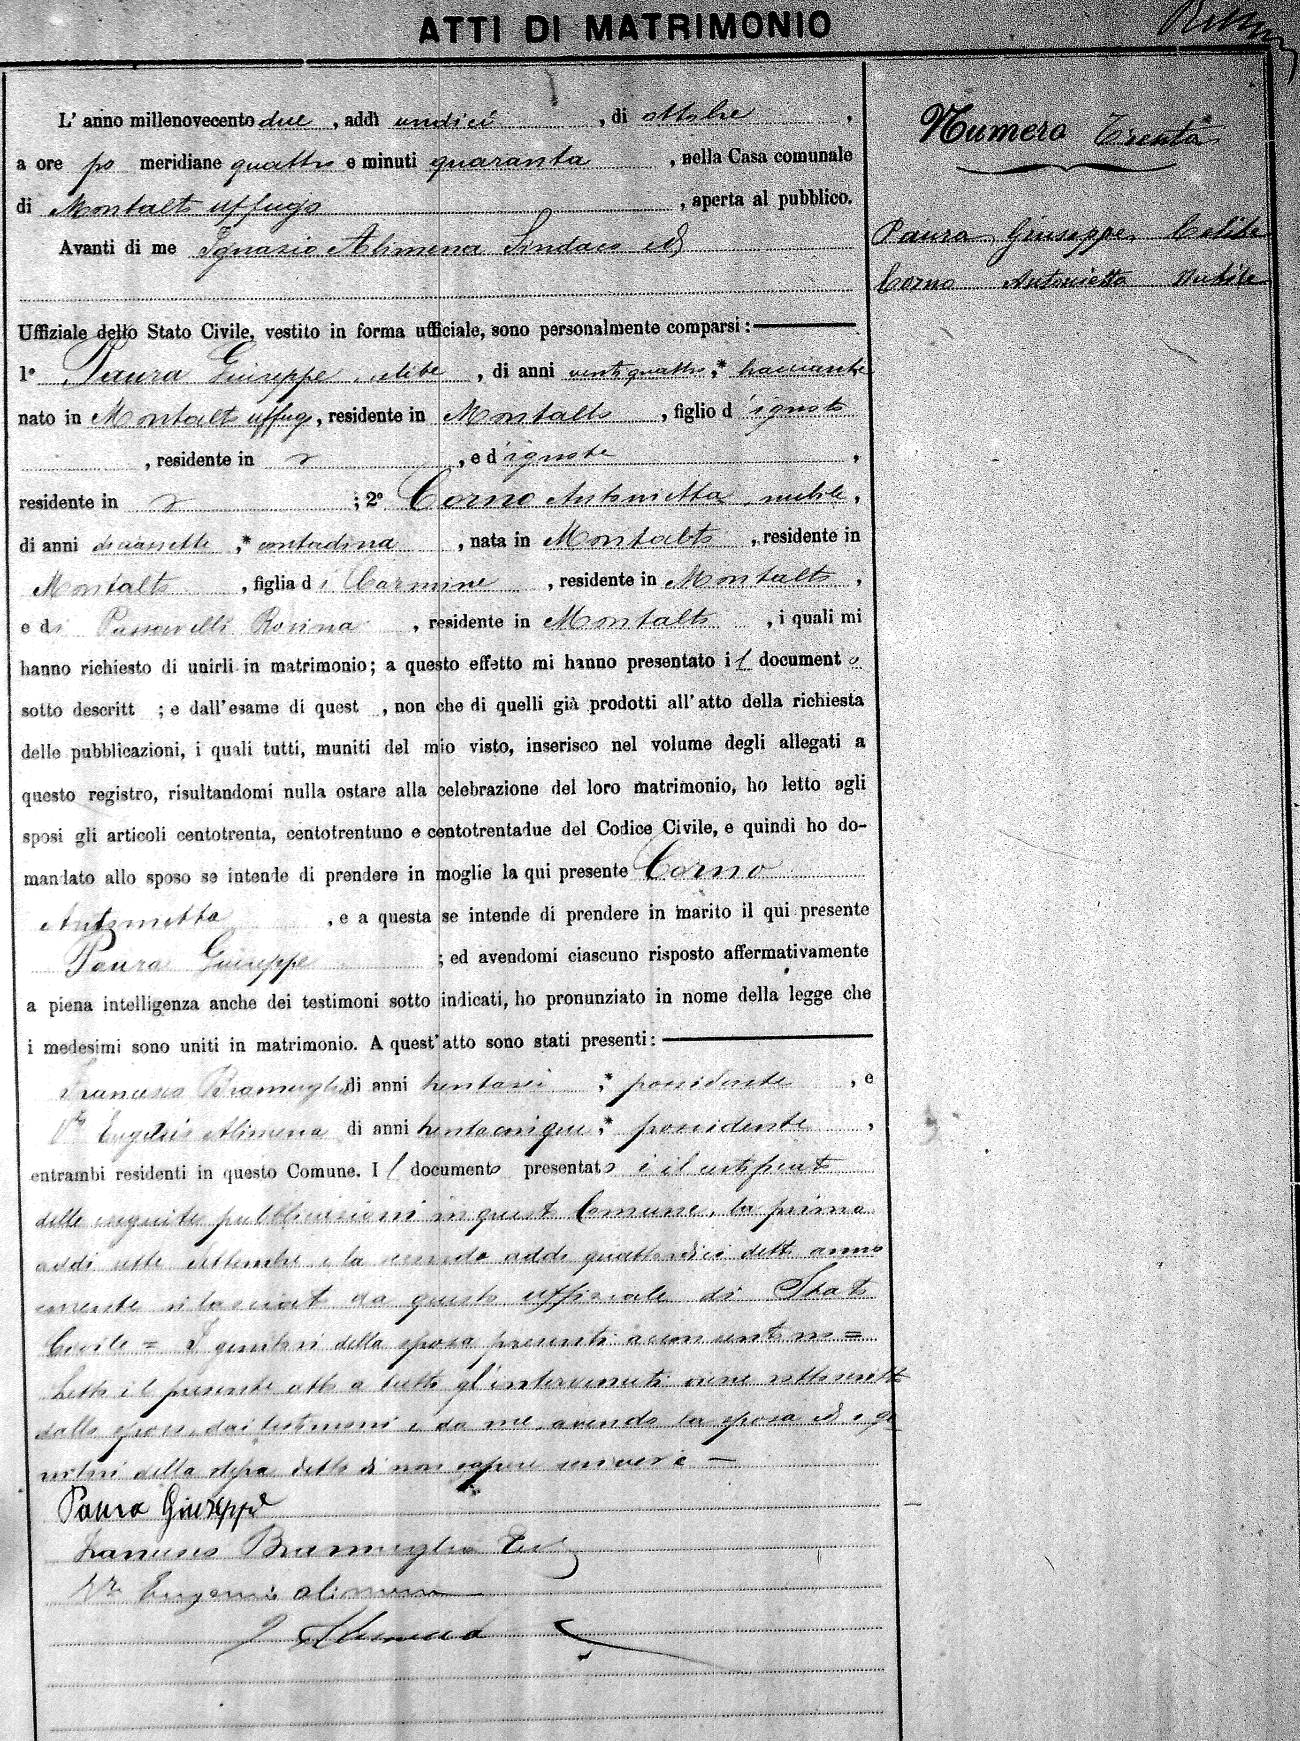 ATTI DI MATRIMONIO
Numero Trenta
Paura Giuseppe Celibe
Corno Antonietta Nubile
L' anno millenovecento due, addì undici, di ottobre,
a ore po meridiane quattro e minuti quaranta, nella Casa comunale
di Montalto uffugo, aperta al pubblico.
Avanti di me Ignazio Alimena Sindaco ed
Uffiziale dello Stato Civile, vestito in forma ufficiale, sono personalmente comparsi:
1° Paura Giuseppe celibe, di anni ventiquattro,* bracciante
nato in Montalto uffugo, residente in Montalto, figlio d'ignoto
, residente in , e d'ignota,
residente in ; 2° Corno Antonietta nubile,
di anni diciassette,* contadina, nata in Montalto, residente in
Montalto, figlia di Carmine, residente in Montalto,
e di Rosina, residente in Montalto, i quali mi
hanno richiesto di unirli in matrimonio; a questo effetto mi hanno presentato il documento
sotto descritt ; e dall'esame di quest , non che di quelli già prodotti all'atto della richiesta
delle pubblicazioni, i quali tutti, muniti del mio visto, inserisco nel volume degli allegati a
questo registro, risultandomi nulla ostare alla celebrazione del loro matrimonio, ho letto agli
sposi gli articoli centotrenta, centotrentuno e centotrentadue del Codice Civile, e quindi ho do-
mandato allo sposo se intende di prendere in moglie la qui presente Corno
Antonietta, e a questa se intende di prendere in marito il qui presente
Paura Giuseppe; ed avendomi ciascuno risposto affermativamente
a piena intelligenza anche dei testimoni sotto indicati, ho pronunziato in nome della legge che
i medesimi sono uniti in matrimonio. A quest'atto sono stati presenti:
Francesco Bramuglia di anni trentasei,* possidente, e
Eugenio Alimena di anni trentacinque,* possidente,
entrambi residenti in questo Comune. Il documento presentato è il certificato
delle eseguite pubblicazioni in questo Comune, la prima
addì sette settembre e la seconda addì quattordici detto anno
corrente rilasciato da questo uffiziale di Stato
Civile = I genitori della sposa presenti acconsentono =
Letto il presente atto a tutti gl'intervenuti viene sottoscritto
dallo sposo, dai testimoni e da me, avendo la sposa ed i ge
nitori della stessa detto di non sapere scrivere —
Paura Giuseppe
Francesco Bramuglia
Eugenio Alimena
I Alimena